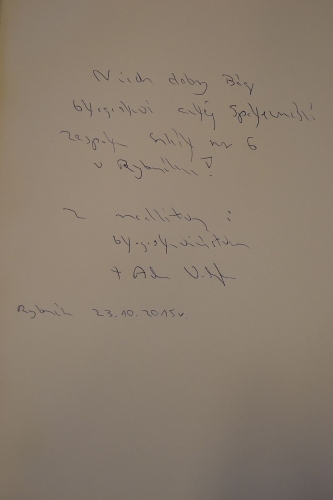 Niech dobry Bóg
błogosławi całej Społeczności
Zespołu Szkół nr 6
w Rybniku!
Z modlitwą i
błogosławieństwem
+ Adam
Rybnik 23.10.2015 r.